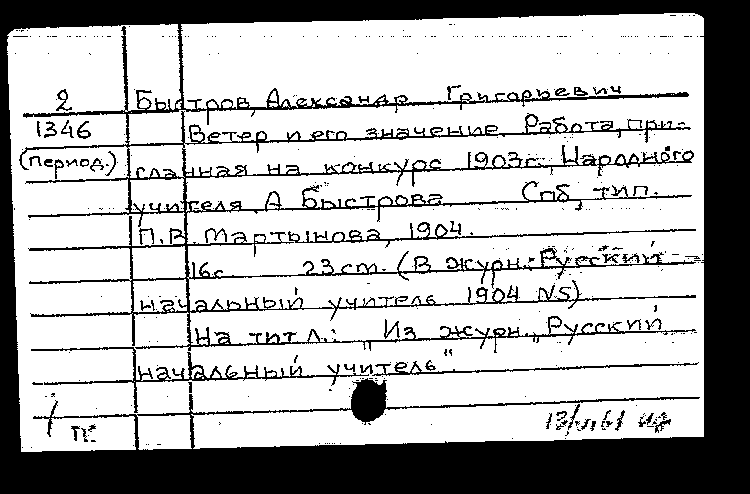 2 Быстров, Александр Григорьевич
1346 Ветер и его значение. Работа, при-
(период.) сланная на конкурс 1903г. Народного
учителя А Быстрова. Спб, тип.
П.В. Мартынова, 1904.
16с 23 cm. (В журн.: Русский
начальный учитель 1904 N5)
На тит л.: „Из журн. „Русский
начальный учитель".
П